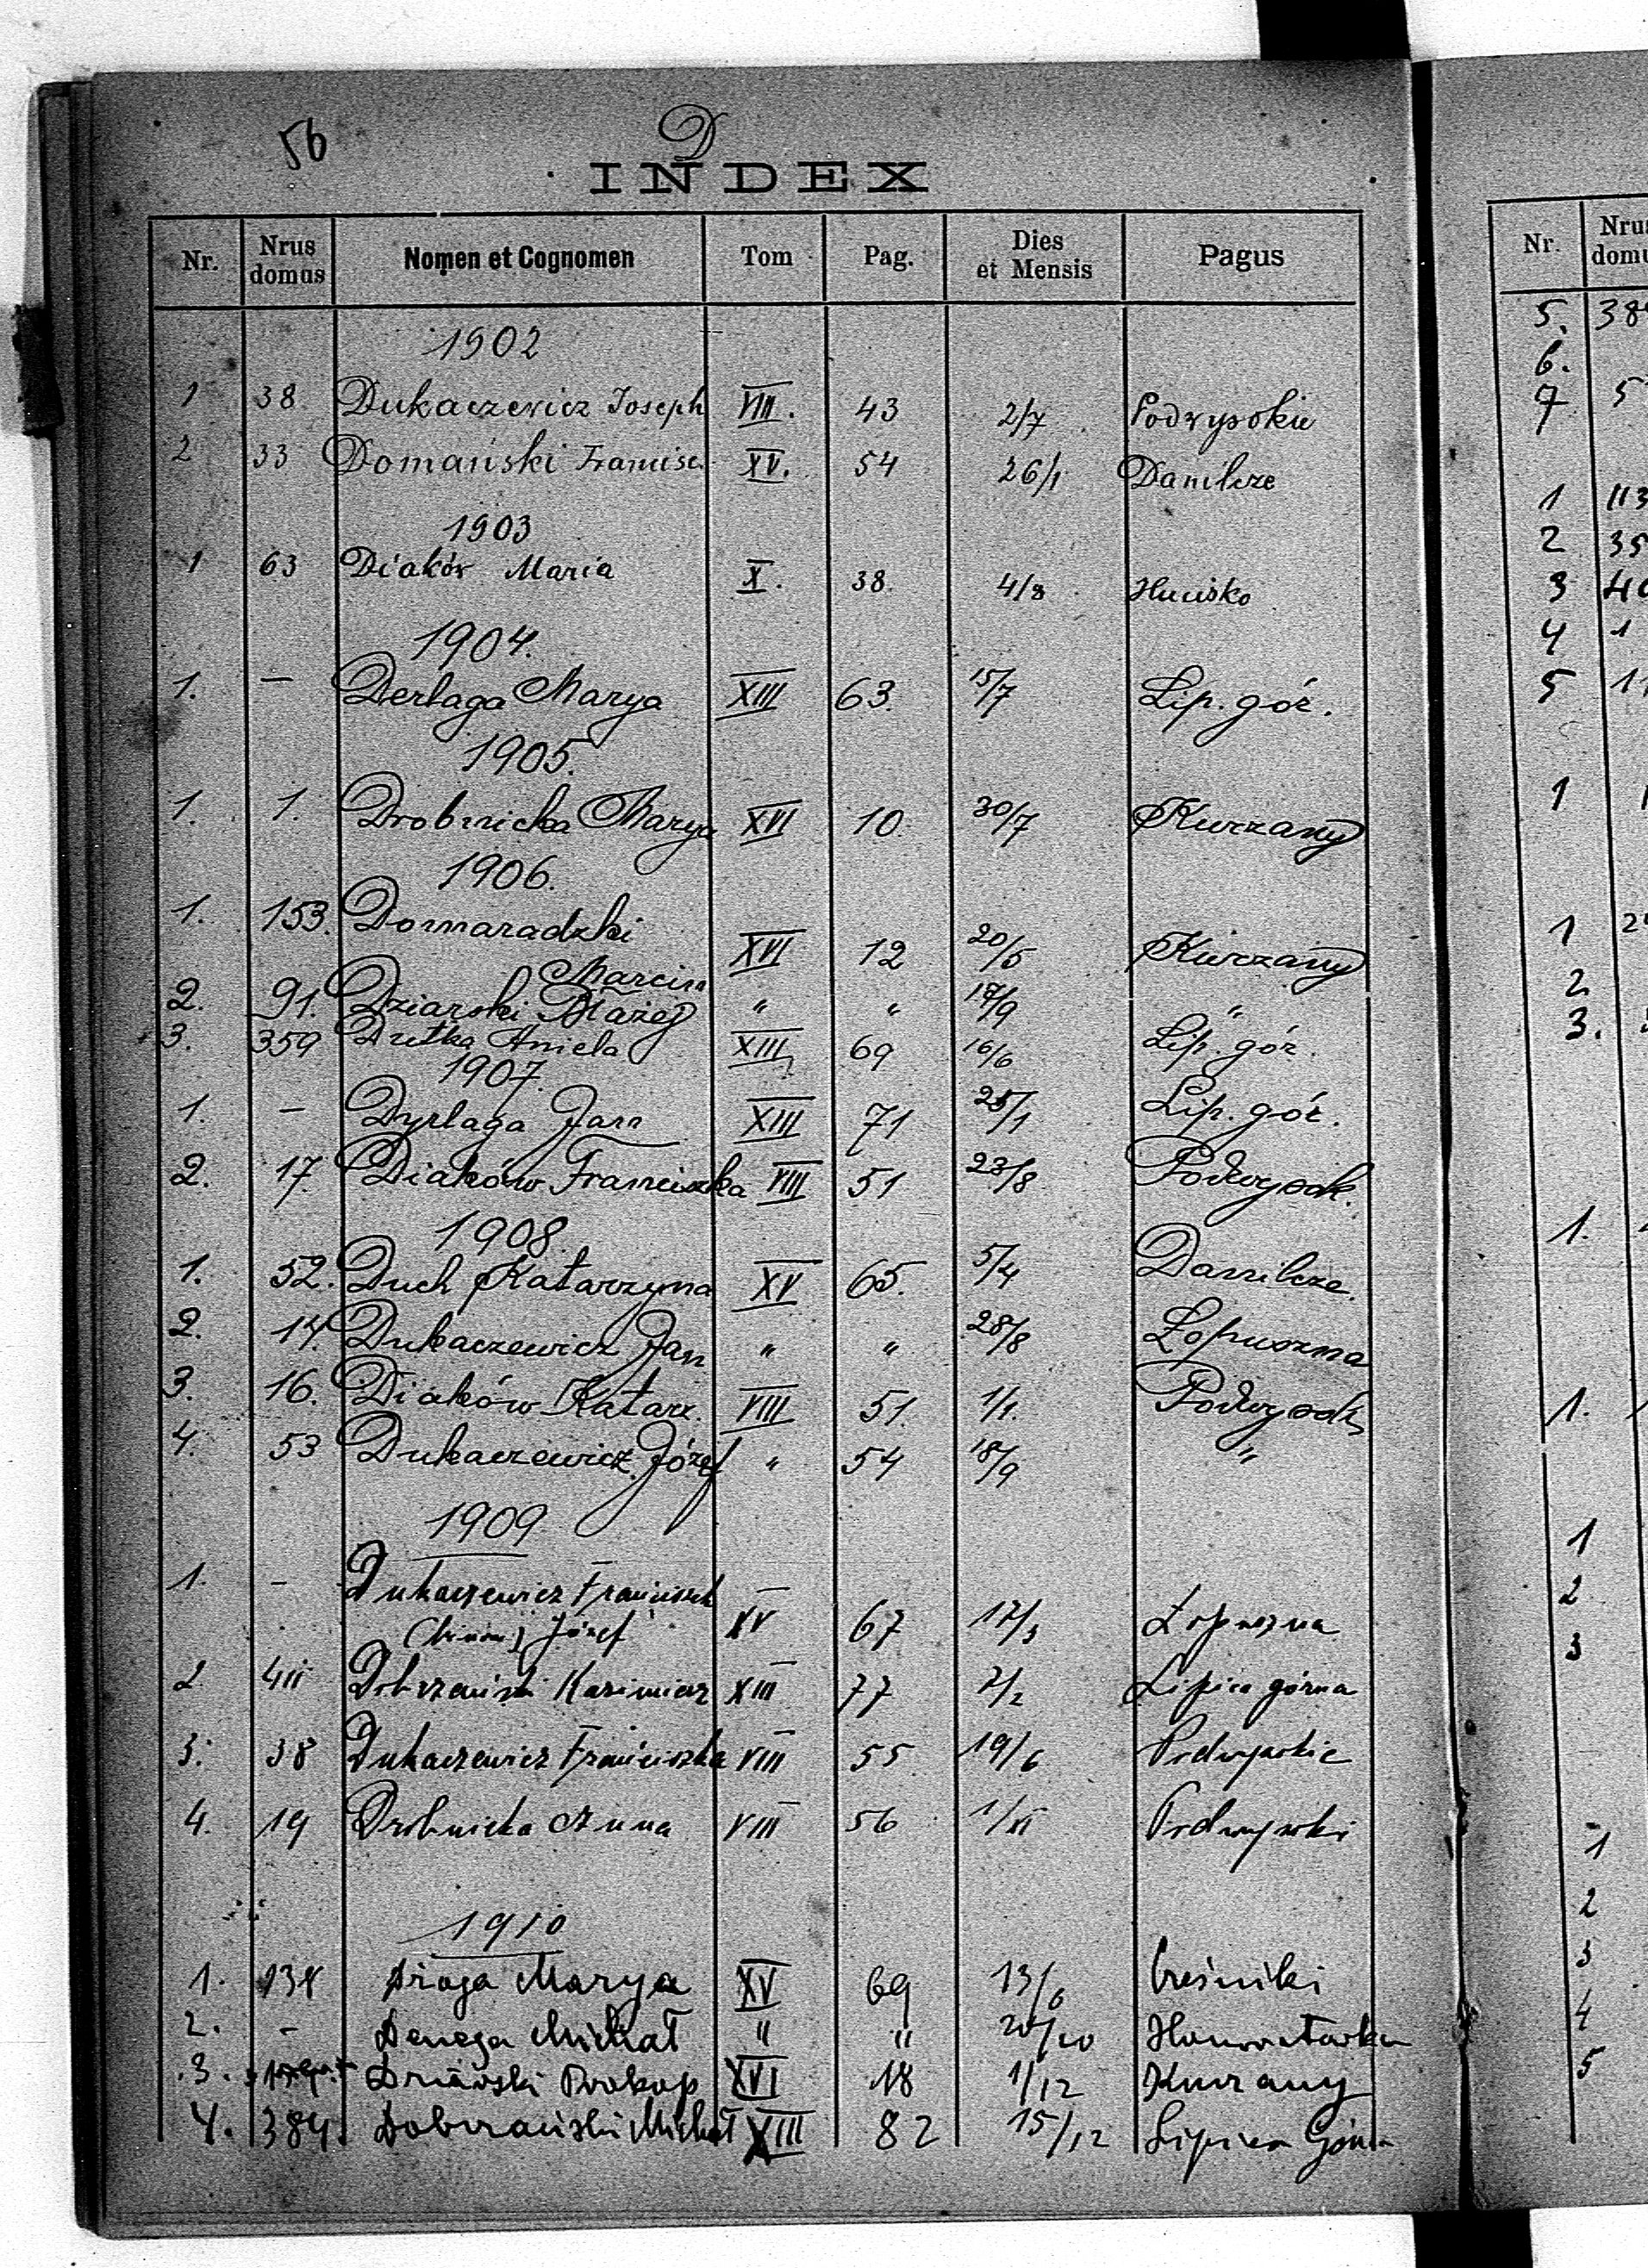 56
D
INDEX
Nr. Nrus domus Nomen et Cognomen Tom Pag. Dies et Mensis Pagus
1902
1 38 Dukaczewicz Joseph VIII. 43 2/7 Podwysokie
2 33 Domański Francisc. XV. 54 26/1 Danilcze
1903
1 63 Diaków Maria X. 38. 4/8 Hucisko
1904.
1. — Derlaga Marya XIII 63. 15/7 Lip. gór.
1905.
1. 1. Drobnicka Marya XVI 10. 30/7 Kurzany
1906.
1. 153. Domaradzki
Marcin XVI 12 20/5 Kurzany
2. 91. Dziarski Błażej " " 17/9 "
3. 359 Dutka Aniela XIII 69 16/6 Lip. gór.
1907.
1. — Dyrlaga Jan XIII 71 25/1 Lip. gór.
2. 17. Diaków Franciszka VIII 51 23/8 Podwysok.
1908.
1. 52. Duch Katarzyna XV 65. 5/4 Danilcze.
2. 14. Dukaczewicz Jan " " 28/8 Łopuszna
3. 16. Diaków Katarz. VIII 51. 1/1. Podwysok
4. 53 Dukaczewicz Józef " 54 18/9 "
1909
1. — Dukaczewicz Franciszek
Józef XV 67 17/3 Łopuszna
2. 411 Dobrzański Kazimierz XIII 77 2/2 Lipica górna
3. 38 Dukaczewicz Franciszka VIII 55 19/6 Podwysokie
4. 19 Drobnicka Anna VIII 56 1/XI Podwysoki
1910
1. 138 Draga Marya XV 69 13/6 Cześniki
2. — Denega Michał " " 20/10 Honoratówka
3. Prokop XVI 18 1/12 Kurzany
4. 384. Dobrzański Michał XIII 82 15/12 Lipica Górna
Nr. Nrus domu
5. 38
6.
7 5
1 113
2 35
3
4 1
5 1
1
1 2
2
3.
1.
1.
1
2
3
1
2
3
4
5